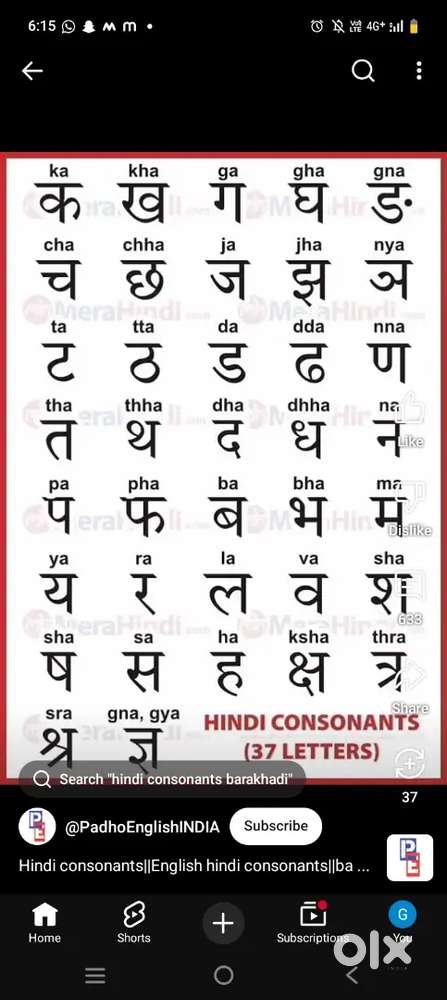 6:15
4G+
ka kha ga gha gna
क ख ग घ ङ
cha chha ja jha nya
च छ ज झ ञ
ta tta da dda nna
ट ठ ड ढ ण
tha thha dha dhha na
त थ द ध न
Like
pa pha ba bha ma
प फ ब भ म
Dislike
ya ra la va sha
य र ल व श
633
sha sa ha ksha thra
ष स ह क्ष त्र
Share
sra gna, gya
श्र ज्ञ
HINDI CONSONANTS
(37 LETTERS)
Search "hindi consonants barakhadi"
37
@PadhoEnglishINDIA Subscribe
Hindi consonants||English hindi consonants||ba ...
Home Shorts Subscriptions You
G
olx
INDIA